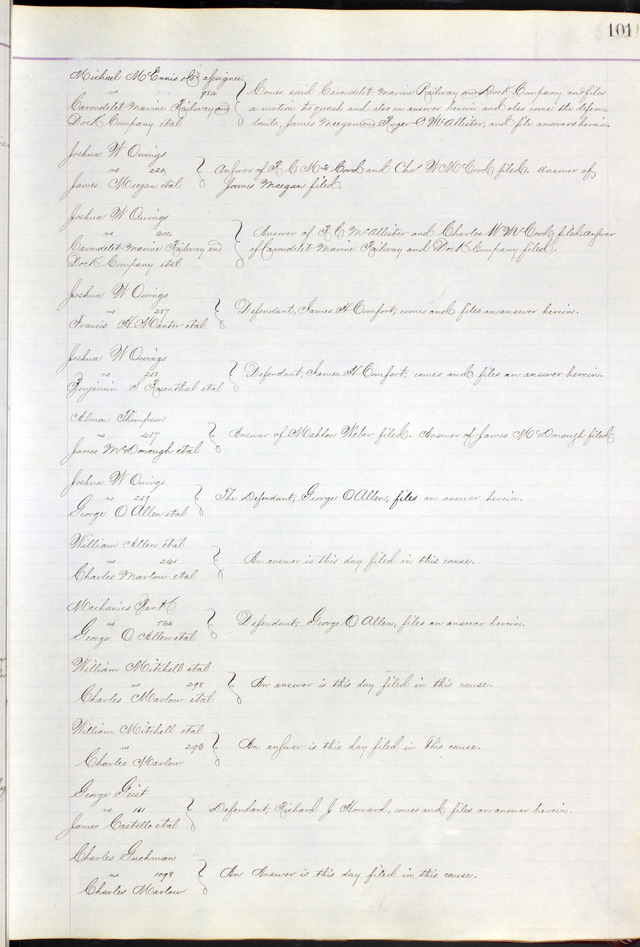 101
Michael McEnnis & Co's assignee
vs 934
Carondelet Marine Railway and
Dock Company etal
Comes said Carondelet Marine Railway and Dock Company and files
a motion to quash and also an answer herein and also come the defen-
dants, James Meegan and Roger C McAllister, and file answers herein
Joshua W Owings
vs
James Meegan etal
Answer of R C McCord and Chas W McCord filed. Answer of
James Meegan filed.
Joshua W Owings
vs
Carondelet Marine Railway and
Dock Company etal
Answer of R C McAllister and Charles W McCord filed. Answer
of Carondelet Marine Railway and Dock Company filed.
Joshua W Owings
vs 257
Francis H Manter etal
Defendant, James H Comfort, comes and files an answer herein.
Joshua W Owings
vs 258
Benjamin S Rosenthal etal
Defendant, James H Comfort, comes and files an answer herein.
Almon Thompson
vs 457
James McDonough etal
Answer of Mahlon Weber filed. Answer of James McDonough filed
Joshua W Owings
vs 259
George O Allen etal
The Defendant, George O Allen, files an answer herein.
William Allen etal
vs
Charles Marlow etal
An answer is this day filed in this cause.
Mechanics Bank
vs
George O Allen etal
Defendant, George O Allen, files an answer herein.
William Mitchell etal
vs 295
Charles Marlow etal
An answer is this day filed in this cause.
William Mitchell etal
vs 298
Charles Marlow
An answer is this day filed in this cause.
George Geist
vs 181
James Castello etal
Defendant, Richard J Howard, comes and files an answer herein.
Charles Guchman
vs 1098
Charles Marlow
An Answer is this day filed in this cause.